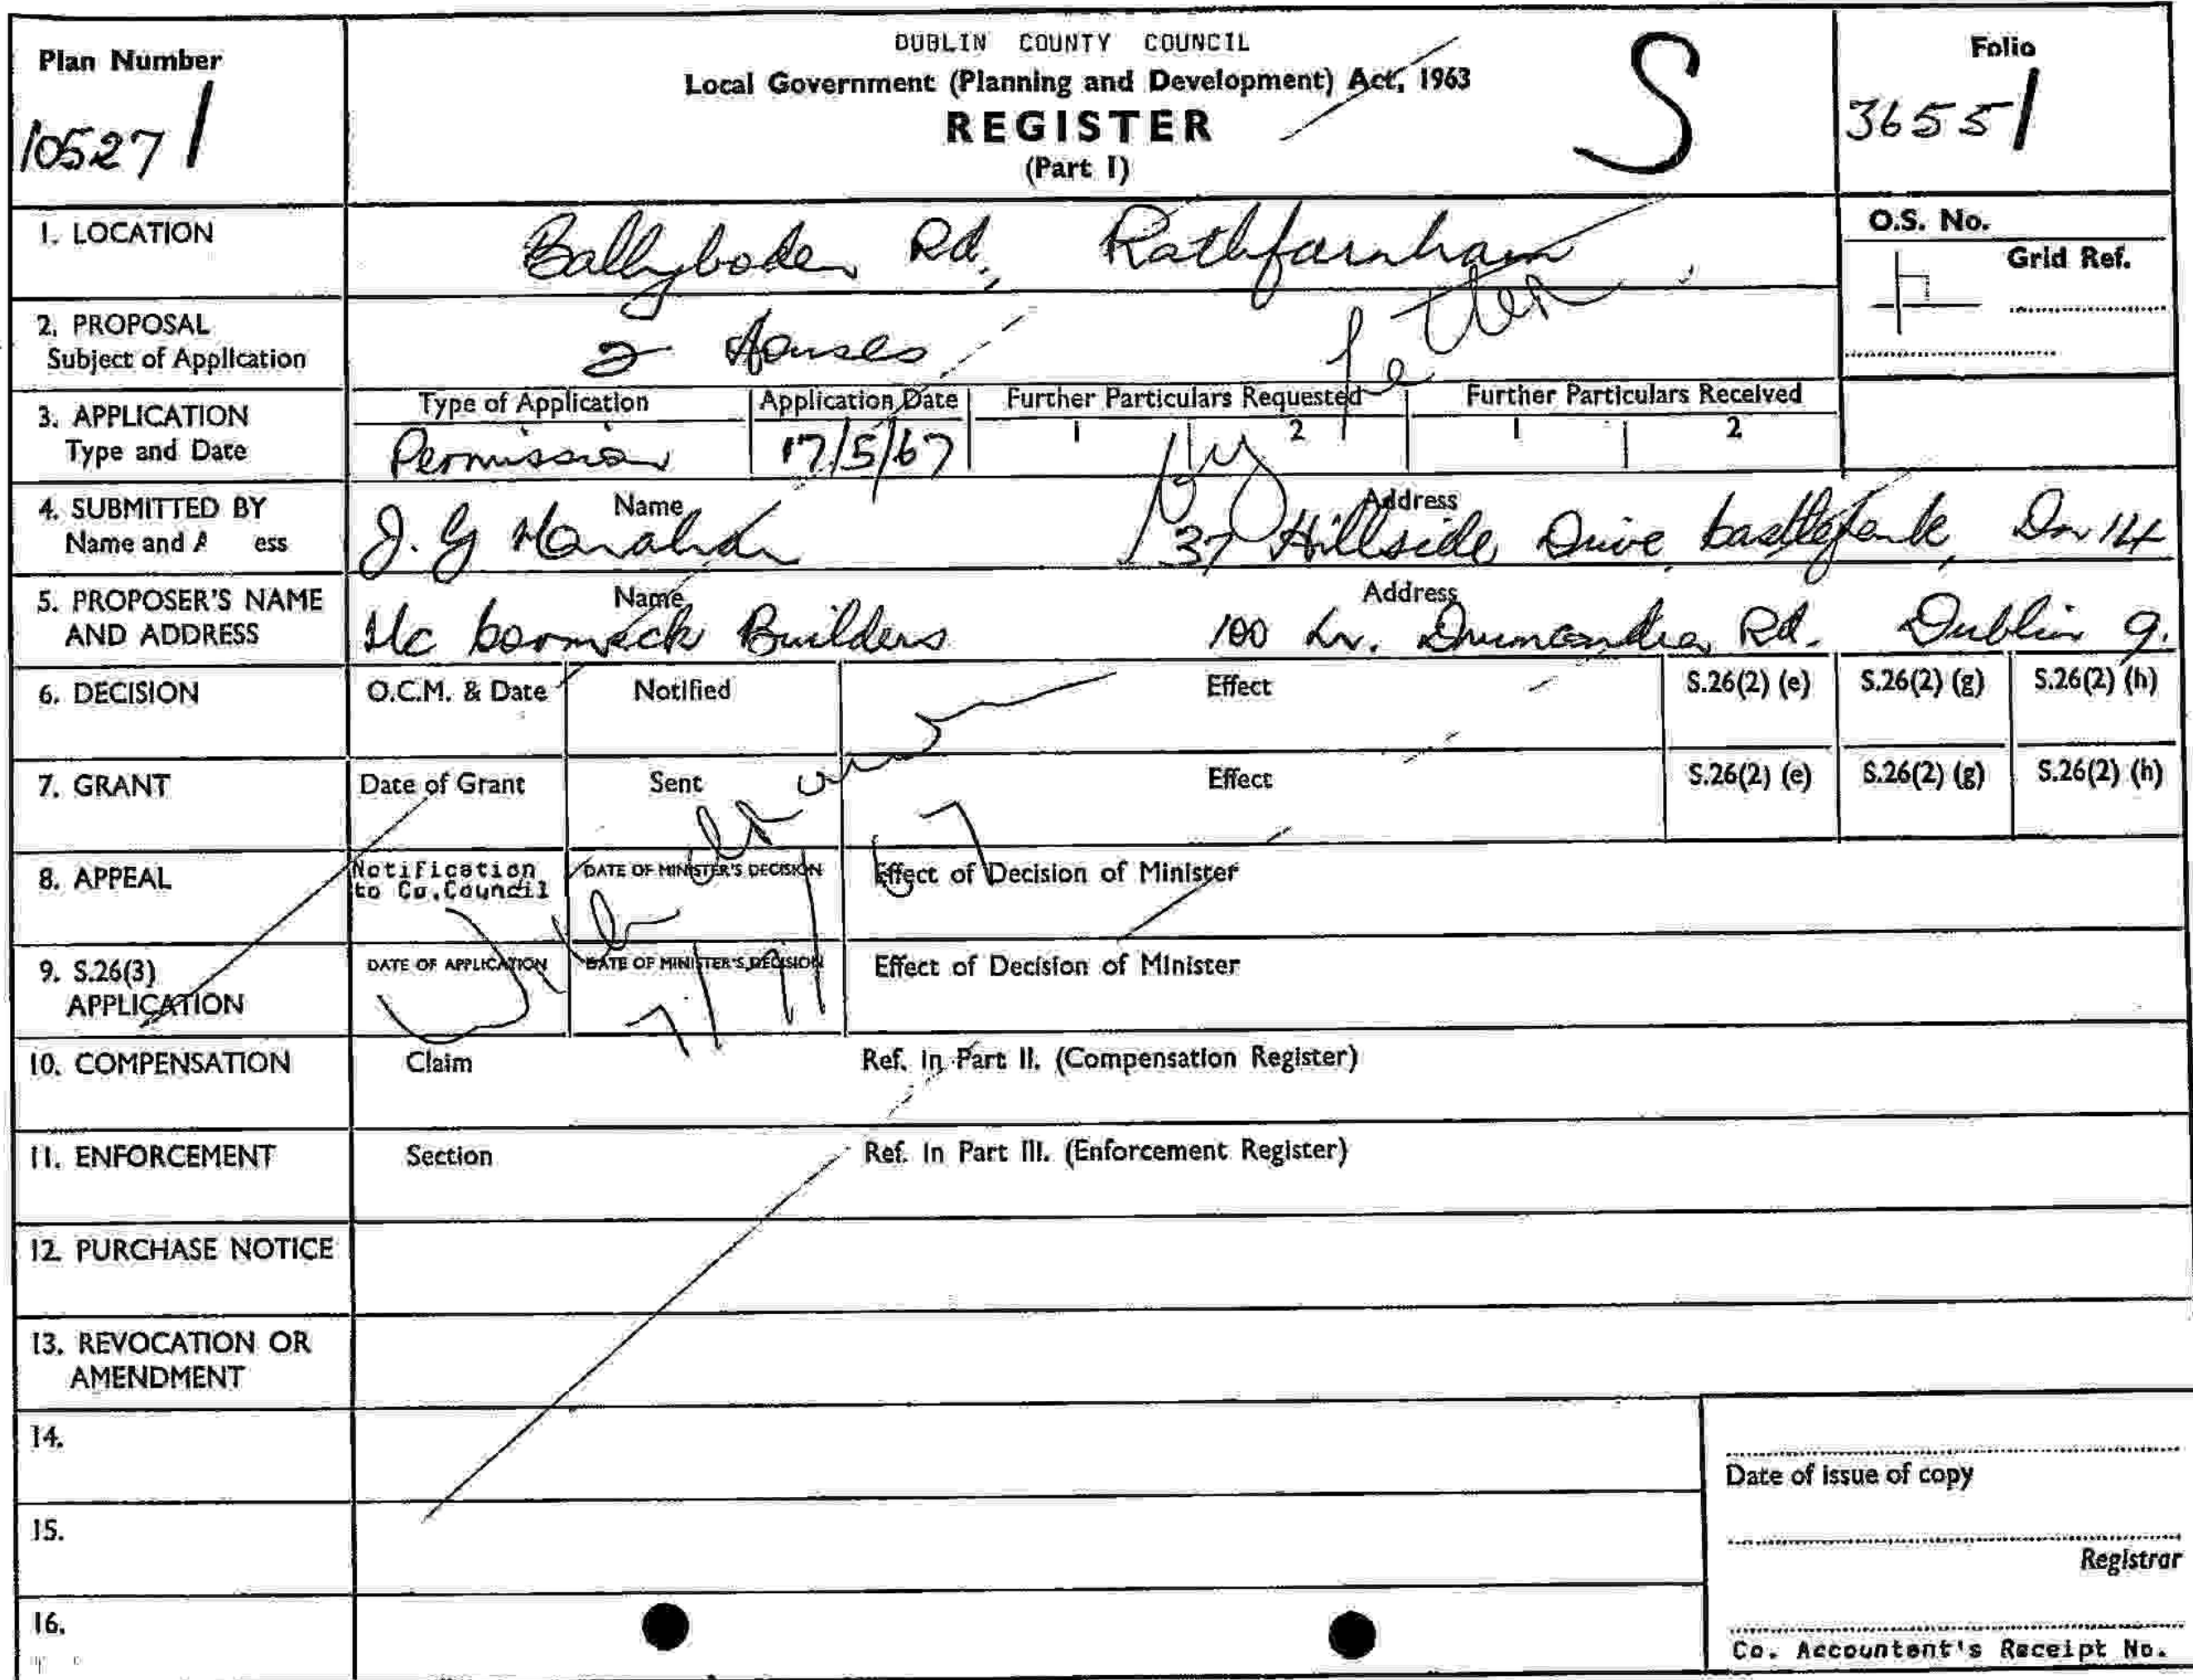 DUBLIN COUNTY COUNCIL
Local Government (Planning and Development) Act, 1963
REGISTER
(Part I)
S
Plan Number
10527
Folio
3655
1. LOCATION
Ballyboden Rd., Rathfarnham
O.S. No.
Grid Ref.
2. PROPOSAL
Subject of Application
2 Houses
3. APPLICATION
Type and Date
Type of Application
Permission
Application Date
17/5/67
Further Particulars Requested
1 2
Further Particulars Received
1 2
4. SUBMITTED BY
Name and A ess
Name
J. G
Address
37 Hillside Drive, Castlepark, Dn 14
5. PROPOSER'S NAME
AND ADDRESS
Name
Mc Cormack Builders
Address
100 Lr. Drumcondra Rd. Dublin 9.
6. DECISION
O.C.M. & Date
Notified
Effect
S.26(2) (e) S.26(2) (g) S.26(2) (h)
7. GRANT
Date of Grant
Sent
Effect
S.26(2) (e) S.26(2) (g) S.26(2) (h)
8. APPEAL
Notification
to Co.Council
DATE OF MINISTER'S DECISION
Effect of Decision of Minister
9. S.26(3)
APPLICATION
DATE OF APPLICATION
DATE OF MINISTER'S DECISION
Effect of Decision of Minister
Withdrawn by letter
10. COMPENSATION
Claim
Ref. in Part II. (Compensation Register)
11. ENFORCEMENT
Section
Ref. in Part III. (Enforcement Register)
12. PURCHASE NOTICE
13. REVOCATION OR
AMENDMENT
14.
15.
16.
Date of issue of copy
Registrar
Co. Accountant's Receipt No.